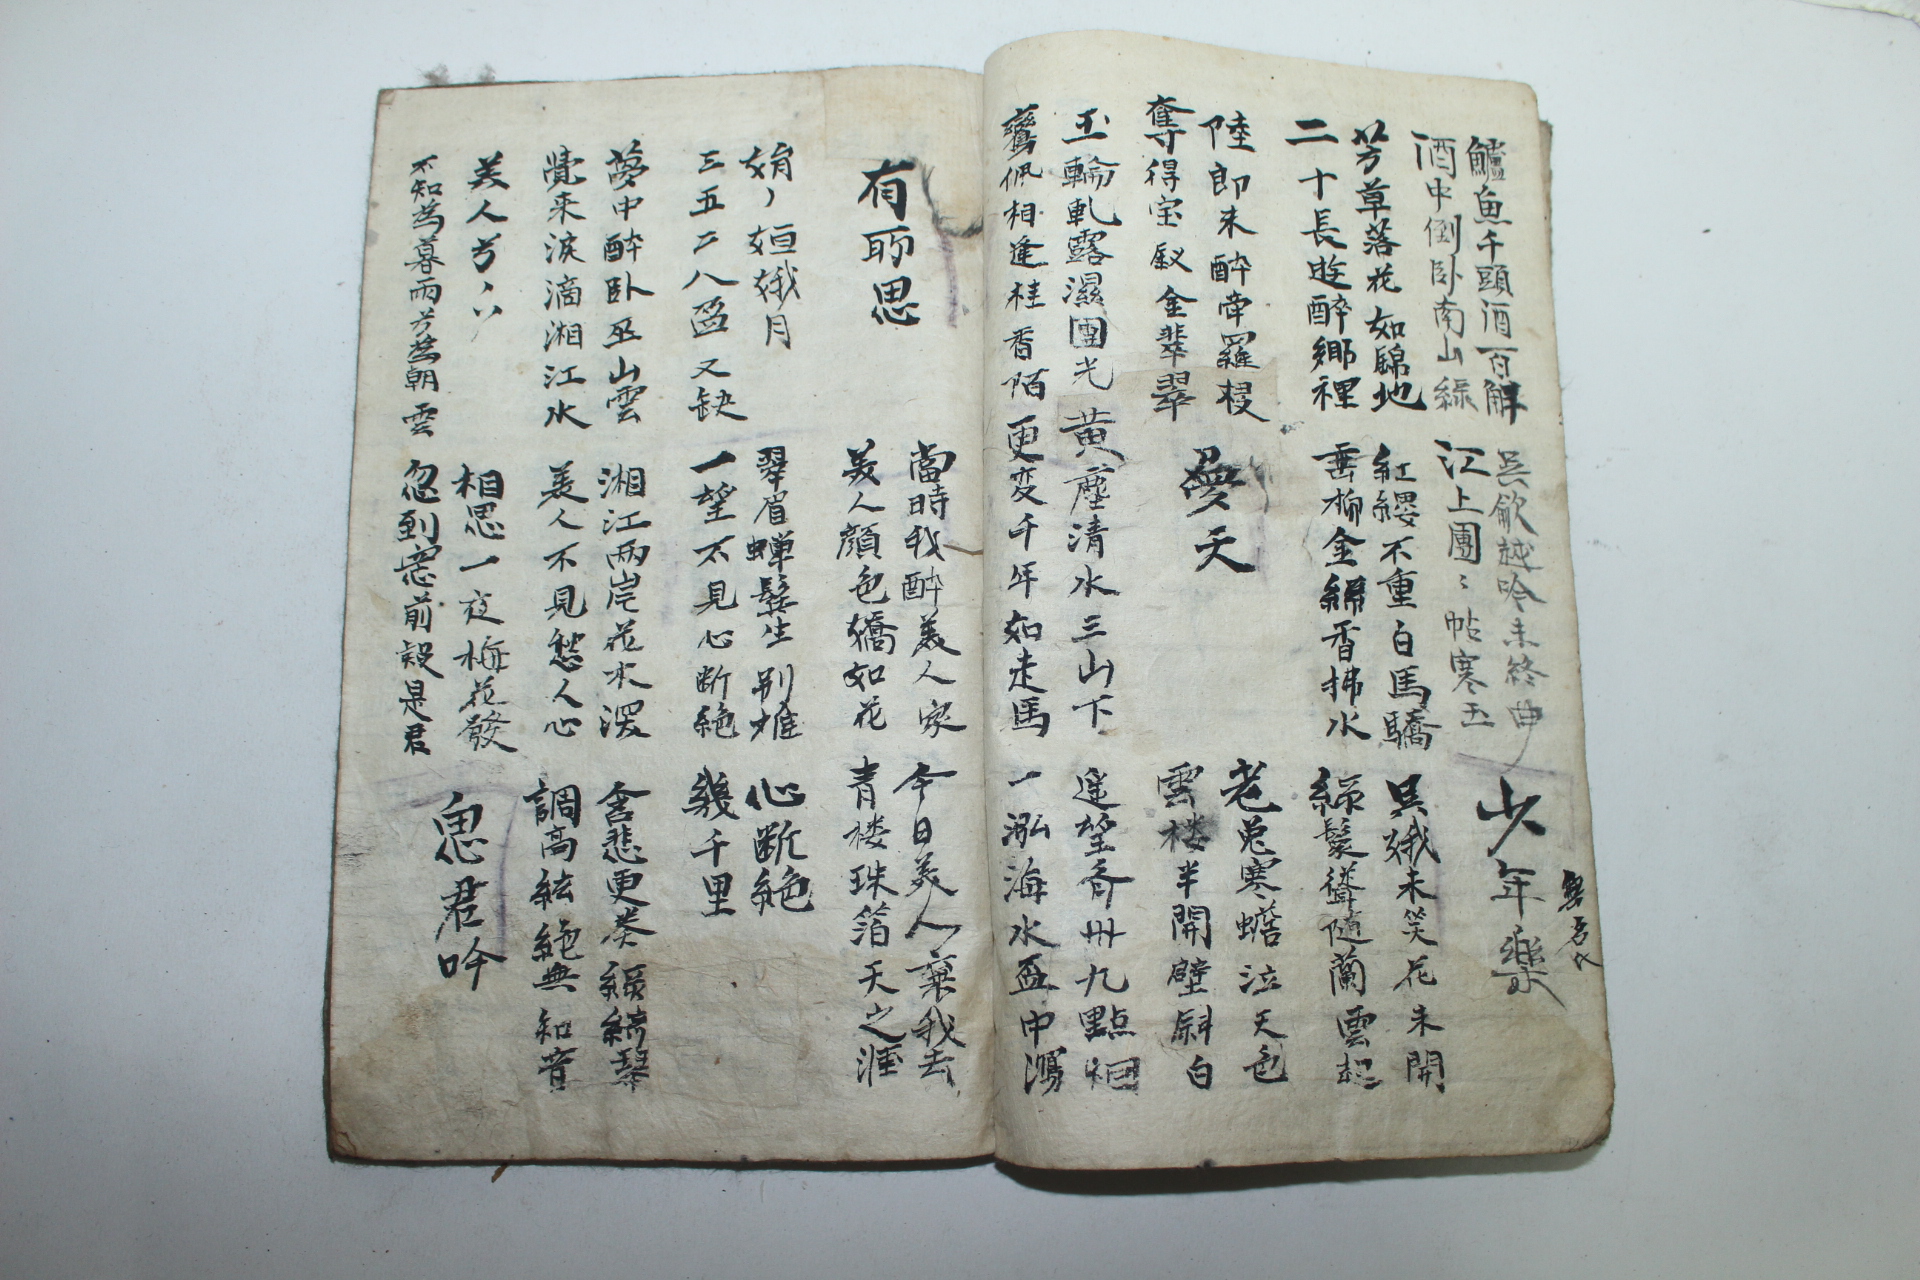 鱸魚千頭酒百斛
酒中倒臥南山綠
吳歈越吟未終曲
江上團〻帖寒玉
少年樂
芳草落花如錦地
二十長遊醉鄉裡
紅纓不重白馬驕
垂柳金絲香拂水
吳娥未笑花未開
綠鬟聳隨蘭雲起
陸郎未醉牽羅
奪得宝釵金翡翠
夢天
老兔寒蟾泣天色
雲楼半開壁斜白
玉輪軋露濕團光
鸞佩相逢桂香陌
黄塵清水三山下
更変千年如走馬
遙望齊州九點烟
一泓海水盃中瀉
有所思
當時我醉美人家
美人顔色嬌如花
今日美人棄我去
青楼珠箔天之涯
娟〻姮娥月
三五二八盈又缺
翠眉蟬鬂生別離
一望不見心断絶
心断絶
幾千里
夢中醉臥巫山雲
覺来淚滴湘江水
湘江兩岸花木深
美人不見愁人心
含悲更奏綠綺琴
調高絃絶無知音
美人兮〻〻
不知為暮雨兮為朝雲
相思一夜梅花發
忽到窓前疑是君
思君吟